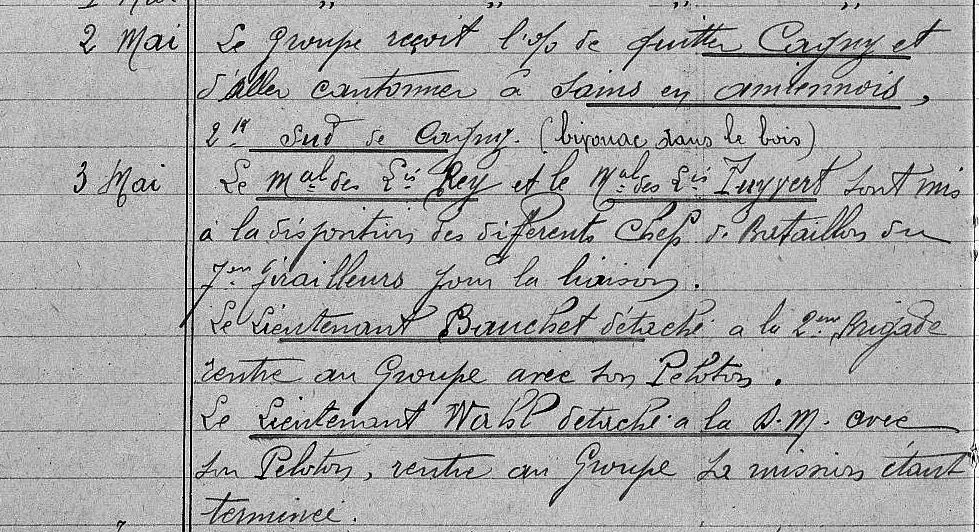 2 Mai Le Groupe reçoit l'o/o de quitter Cagny et
d'aller cantonner à Sains en amiennois,
2 Sud de Cagny. (bivouac dans le bois)
3 Mai Le Mal des Lis Rey et le Mal des Lis Zuyvert sont mis
à la disposition des différents Chefs de Bataillon du
7em Tirailleurs pour la liaison.
Le Lieutenant Bauchet détaché à la 2em Brigade
rentre au Groupe avec son Peloton.
Le Lieutenant Wahl détaché à la D.M. avec
son Peloton, rentre au Groupe sa mission étant
terminée.